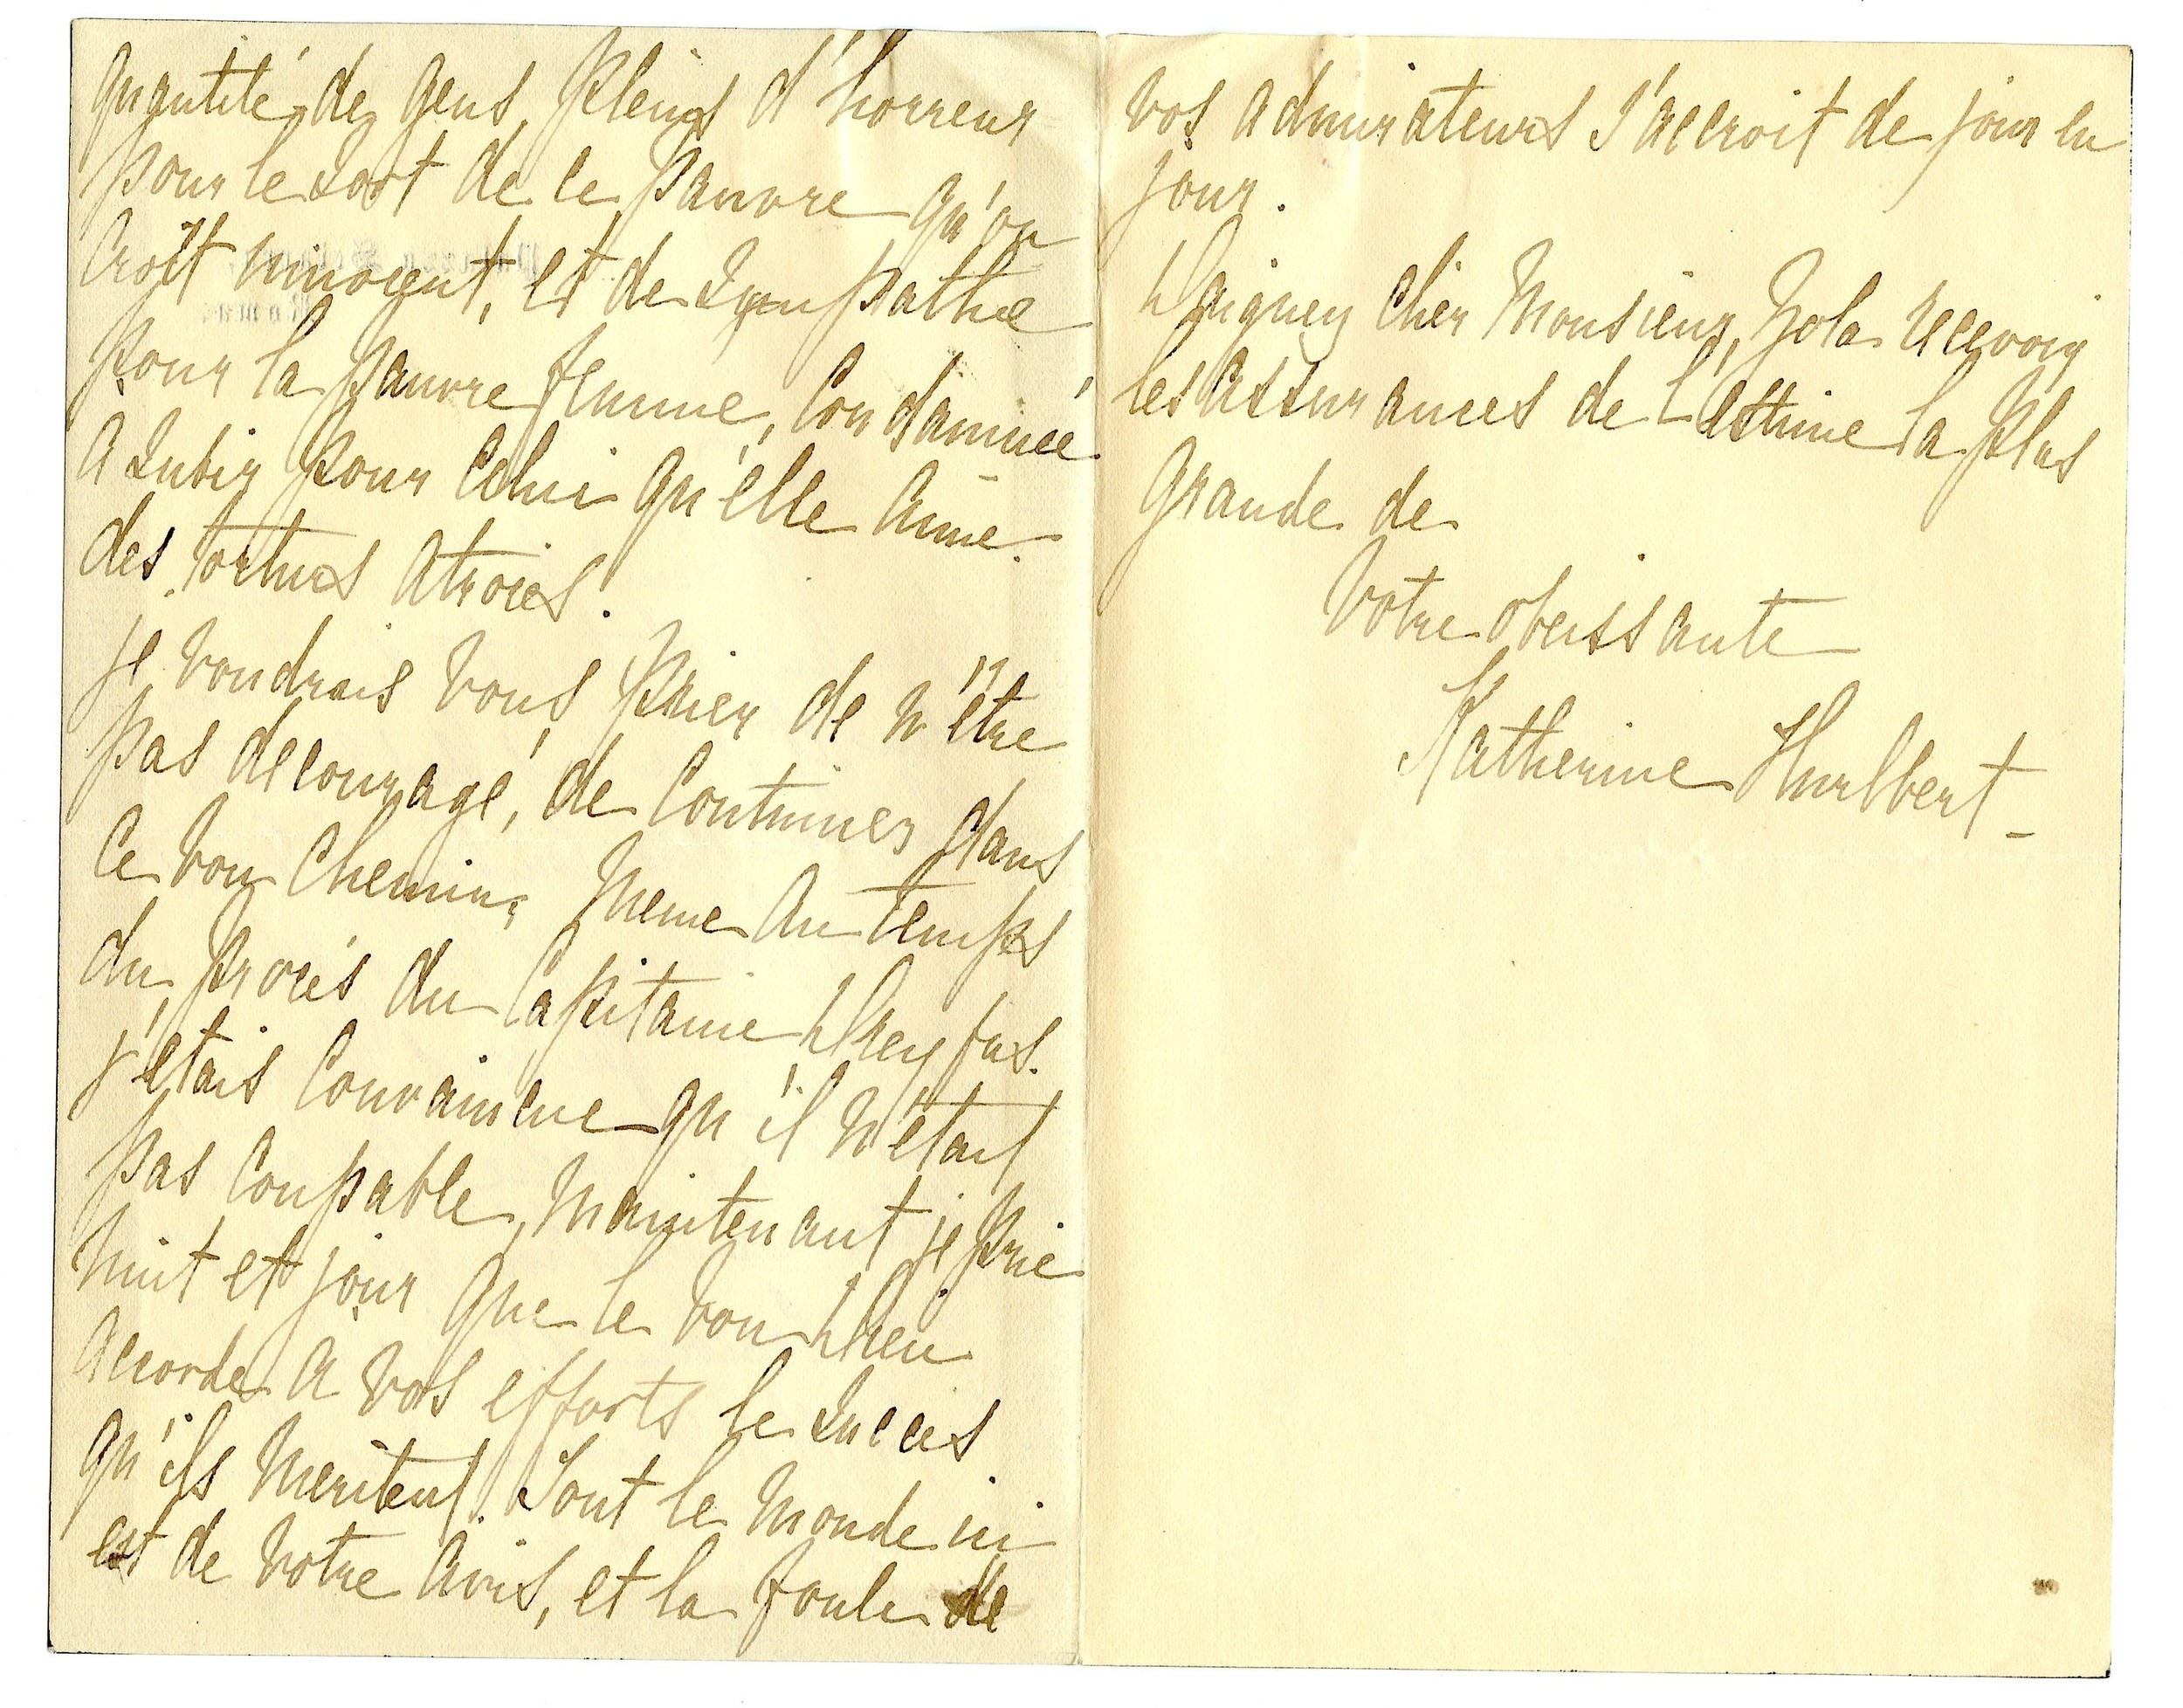 quantité de gens pleins d'horreur
pour le sort de ce pauvre qu'on
croit innocent, et de sympathie
pour la pauvre femme, condamnée
a subir pour celui qu'elle aime
des tortures atroces.
je voudrais vous prier de n'être
pas decouragé, de continuer dans
ce bon chemin; meme au temps
du procès du Capitaine Dreyfus.
j'étais convaincue qu'il n'était
pas coupable, maintenant je prie
nuit et jour que le bon Dieu
accorde a vos efforts le succes
qu'ils meritent. Tout le monde ici
est de votre avis, et la foule de
vos admirateurs s'accroit de jour en
jour.
Daignez cher Monsieur, Zola recevoir
les assurances de l'estime la plus
grande de
Votre obeissante
Katherine Hurlbert_